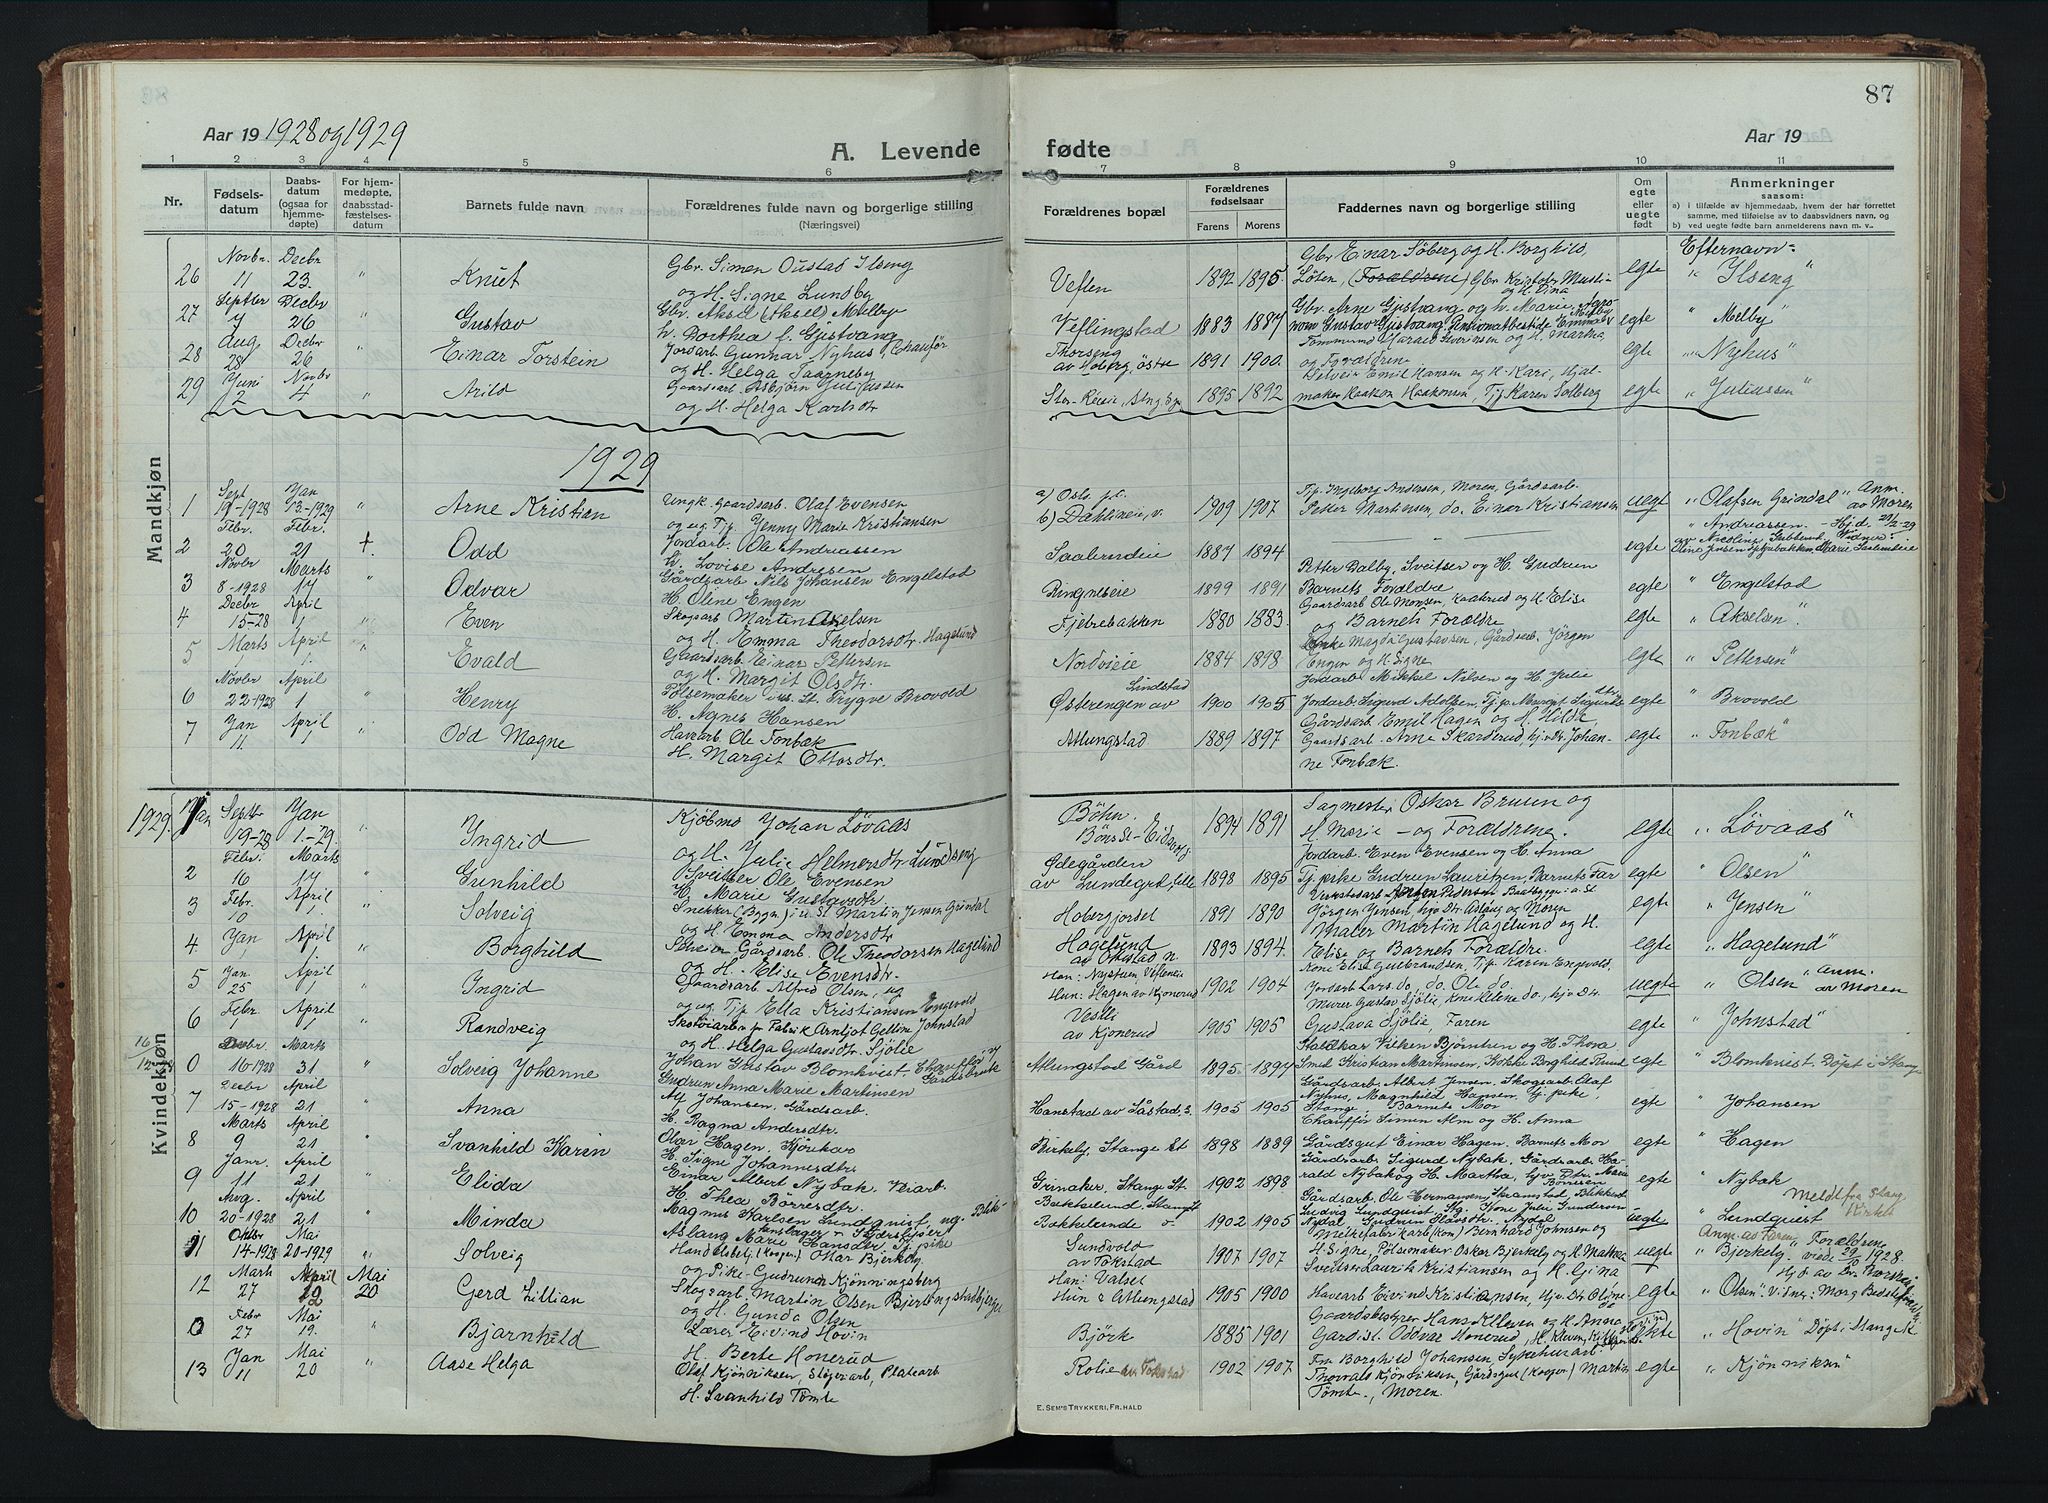 87
Aar 19 1928 og 1929
A. Levende
fødte
Aar 19
1 2 3 4 5 6 7 8 9 10 11
Nr.
Fødsels-
datum
Daabs-
datum
(ogsaa for
hjemme-
døpte)
For hjem-
medøpte,
daabsstad-
fæstelses-
datum
Barnets fulde navn
Forældrenes fulde navn og borgerlige stilling
(Næringsvei)
Forældrenes bopæl
Forældrenes
fødselsaar
Farens Morens
Faddernes navn og borgerlige stilling
Om
egte
eller
uegte
født
Anmerkninger
saasom:
a) i tilfælde av hjemmedaab, hvem der har forrettet
samme, med tilføielse av to daabsvidners navn, og
b) ved uegte fødte barn anmelderens navn m. v.
Efternavn:
26 Novbr. 11 Decbr 23. " Knut Gbr. Simen Oustad Ilseng
og H. Signe Lundby
Veflen 1892 1895. Gbr Einar Söberg og H. Borghild,
Løten, (Forældrene) Gbr Kristofer
egte " Ilseng "
27 Septbr 7 Decbr 26 " Gustav Gbr. Aksel (Aksel) Melby
h. Dorthea f. Gjestvang
Veflingstad 1883 1887 Gbr. Arne Gjestvang og h. Marie
egte " Melby "
28 Aug. 28 Decbr 26 " Einar Torstein Jordarb Gunnar Nyhus, Chauffør
og H. Helga Taarneby
Thorseng
av Hoberg, östre 1891 1900. og Forældrene
egte " Nyhus "
29 Juni 2 Novbr 4 " Arild Gaardsarb. Asbjørn Juliussen
og H. Helga Karlsdtr
1895 1892 Emil Hansen og H. Kari,
maker Haakon Haakonsen, Tjp Karen Solberg
egte " Juliussen "
1929
Mandkjøn
1 Sept 19-1928 Jan 13-1929 " Arne Kristian Ungk. Gaardsarb. Olaf Evensen
og ug. Tjp. Jenny Marie Kristiansen
a) Oslo p.t.
b) Dahlsneie, v. 1909 1907 Tjp. Ingeborg Andersen, Moren, Gårdsarb.
Petter Martinsen, do. Einar Kristiansen
uegte " Olafsen Grindal " Anm. av Moren
2 Febr. 20 Febr. 21 †. Odd Jordarb. Ole Andreassen
h. Lovise Andresen
1887 1894 egte " Andreassen. - Hj.d. 21/2-29
3 Novbr 8-1928 Marts 17 " Odvar Gårdsarb Nils Johansen Engelstad
H. Oline Engen
Ringneseie 1899 1891 Petter Dalby, Sveitser og H. Gudrun
Barnets Foreldre
egte " Engelstad
4 Decbr 15-28 April 1 " Even Skogsarb Martin Axelsen
og H. Emma Theodorsdtr Hagelund
Fjebrebakken 1880 1883. Gaardsarb Ole Monsen,
og Barnets Forældre
egte " Akselsen ".
5 Marts 1 April 1. " Evald Gaardsarb. Einar Pettersen
og H. Margit Olsdtr.
Nordvieie 1884 1898 Enke Magda Gustavsen, Gårdsarb. Jörgen
Engen og H. Signe
egte " Pettersen "
6 Novbr 22-1928 April 1 " Henry Pølsemaker Trygve Brovold
H. Agnes Hansen
Østerengen av Lindstad 1900 1905 Jordarb. Mikkel Nilsen og H. Julie
Jordarb Sigurd Adolfsen, Tj.p. Margit
egte " Brovold
7 Jan 11 April 1 " Odd Magne Havearb Ole Fonbæk
H. Margit Ottosdtr.
Atlungstad 1889 1897 Gårdsarb. Emil Hagen og H. Hilda,
Gaardsarb. Arne Skarderud, hj.v. Dtr. Johan-
ne Fonbæk.
egte " Fonbæk"
Kvindekjøn
1929. 1 Septbr 19-28 Jan 1-29 " Yngrid Kjøbmd Johan Lövaas
og H. Julie Helmersdtr Lundseng
Böhn. 1894 1891 Sagmester Oskar Bruun og
H. Marie - og Forældrene.
egte " Lövaas "
2 Febr. 16 Marts 17 " Gunhild Sveitser Ole Evensen
H. Marie Gustavsdtr.
Ødegården
av Lundegrd, lille 1898 1895 Jordarb. Even Evensen og H. Anna
Tj. pike Gudrun Lauritzen, Barnets Far
egte " Olsen "
3 Febr. 10 April 1 " Solveig Snekker (Bygn) Martin Jensen Grindal
og H. Emma Andersdtr
Hobergjordet 1891 1890 Jörgen Jensen, hjv Dtr Aslaug og Moren
egte " Jensen "
4 Jan, 1 April 1 " Borghild Gårdsarb. Ole Theodorsen Hagelund
og H. Elise Evensdtr.
Hagelund
av Okstad n. 1893 1894. Maler Martin Hagelund og H.
Elise og Barnets Forældre.
egte " Hagelund "
5 Jan. 25 April 1 " Ingrid Gaardsarb. Alfred Olsen, ug
og ug Tjp Ella Kristiansen Engevold
Han: Nystuen,
Hun: Hagen av Kjonerud 1902 1904 Kone Elise Gulbrandsen, Tjp. Karen Engevold,
Jordarb Lars do., do. Ole do.
uegte " Olsen " Anm. av Moren
6 Febr 1 April 1 " Randveig Skotøiarb. på Fabrik Arnljot Johnstad
og H. Helga Gustavsdtr. Sjölie
Vestli
av Kjonerud 1905 1905 Murer Gustav Sjölie, Kone Helene do., hjv Dtr.
Gustava Sjölie, Faren
egte " Johnstad "
0 Decbr 16-1928 Marts 31 " Solveig Johanne Johan Gustav Blomkvist Chauffør
Gudrun Anna Marie Martinsen
Atlungstad Gård 1895- 1894 og H. Thora
Smed Kristian Martinsen, Kokke Borghild
egte " Blomkvist. Døpt i Stange
7 Decbr 15-1928 April 21 " Anna Alf Johansen. Gårdsarb.
H. Ragna Andersdtr.
Hanstad av Såstad, s. 1905 1905 Gårdsarb. Albert Jensen. Skogsarb Olaf
Nyhus, Magnhild Hansen tj. pike,
Stange. Barnets Mor
egte " Johansen
8 Marts 9 April 21 " Svanhild Karin Olav Hagen, Kjörekar
H. Signe Johannesdtr.
Birkely, Stange St 1898 1889 Chauffør Simen Alm og H. Anna
Gårdsgut Einar Hagen. Barnets Mor
egte " Hagen
9 Janr. 11 April 21 " Elida Einar Albert Nybak. Veiarb.
H. Thea Börresdtr.
Grinaker. Stange St. 1902 1898 Gårdsarb. Sigurd Nybak. Gårdsarb Ha-
rald Nybak og H. Martha,
egte " Nybak
10 Avg. 20-1928 April 21 " Minda Magnus Karlsen Lundquist, ug.
Aslaug Marie Hansdtr. Tj. pike
Bekkelund, Stange 1902 1905 Gårdsarb. Ole Hermansen,
Ludvig Lundquist, Kone Julie Gundersen
Nydal, Gudrun Olavsdtr. Nydal
uegte " Lundquist Meldt fra Stange Kirke
11 Oktbr 14-1928 Mai 20-1929 " Solveig Handelsbetj. (Koopr.) Otkar Bjerkely,
og Pike Gudrun Kjønningsberg
Sundvold
av Tokstad 1907 1907 Bernhard Johnsen og
H. Signe, Pølsemaker Oskar Bjerkely og H. Mathea
uegte " Bjerkely. Anm. av Faren. Forældrene viede 1928.
12 Marts 27 April 19 Mai 20 Gerd Lillian Skogsarb. Martin Olsen
og H. Gunda Olsen
Han: Valset
Hun: Atlungstad 1905 1900 Sveitser Laurits Kristiansen og H. Gina
Havearb Eivind Kristiansen, hjv Dtr. Oline
egte " Olsen".
0 Febr 27 Mai 19. " Bjarnhild Lærer Eivind Hovin
H. Berte Honerud
Björk 1885 1901 Gaardsbestyrer Hans Kleven og H. Anna
Gardist. Oddvar Honerud,
ekte " Hovin" Døpt i Stange K.
13 Jan 11 Mai 20 " Aase Helga Olaf Kjönniksen, Støperiarb, Platearb
H. Svanhild Tømte
Rolie av Tokstad 1902 1907 Fru Borghild Johansen, Sykehusarb. Martin
Thorvald Kjönniksen, Gårdsgut
Tømte, Moren.
egte " Kjönniksen"
E. SEM'S TRYKKERI, FR. HALD